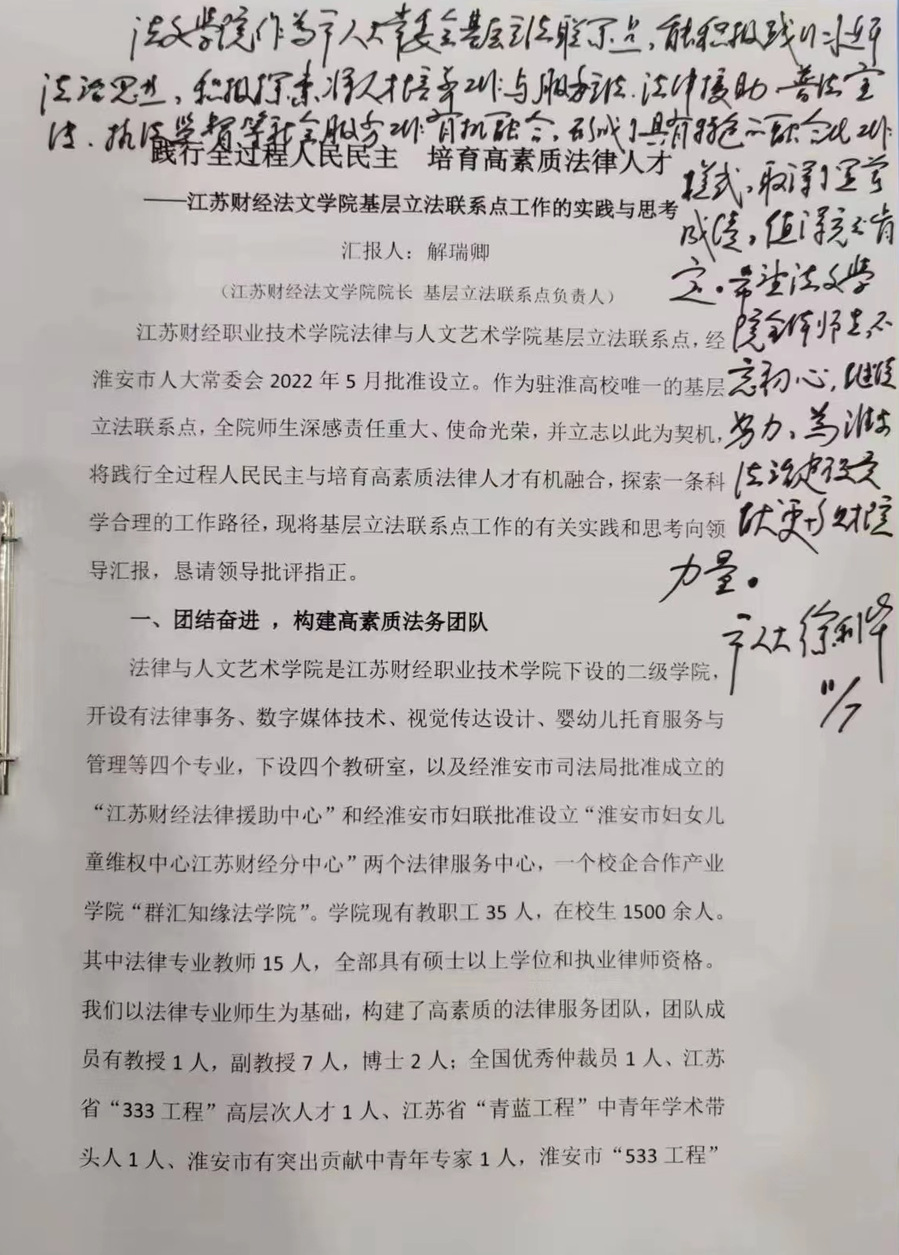 法文学院作为市人大常委会基层立法联系点，能积极践行习近平
法治思想，积极探索将人才培养工作与服务立法、法律援助、普法宣
传、执法监督等社会服务工作有机融合，形成了具有特色的融合化工作
模式，取得了显著
成绩，值得充分肯
定。希望法文学
院全体师生不
忘初心，继续
努力，为淮安
法治建设贡
献更多财院
力量。
市人大
11/7
践行全过程人民民主 培育高素质法律人才
——江苏财经法文学院基层立法联系点工作的实践与思考
汇报人：解瑞卿
（江苏财经法文学院院长 基层立法联系点负责人）
江苏财经职业技术学院法律与人文艺术学院基层立法联系点，经
淮安市人大常委会 2022 年 5 月批准设立。作为驻淮高校唯一的基层
立法联系点，全院师生深感责任重大、使命光荣，并立志以此为契机，
将践行全过程人民民主与培育高素质法律人才有机融合，探索一条科
学合理的工作路径，现将基层立法联系点工作的有关实践和思考向领
导汇报，恳请领导批评指正。
一、团结奋进 ，构建高素质法务团队
法律与人文艺术学院是江苏财经职业技术学院下设的二级学院，
开设有法律事务、数字媒体技术、视觉传达设计、婴幼儿托育服务与
管理等四个专业，下设四个教研室，以及经淮安市司法局批准成立的
“江苏财经法律援助中心”和经淮安市妇联批准设立“淮安市妇女儿
童维权中心江苏财经分中心”两个法律服务中心，一个校企合作产业
学院“群汇知缘法学院”。学院现有教职工 35 人，在校生 1500 余人。
其中法律专业教师 15 人，全部具有硕士以上学位和执业律师资格。
我们以法律专业师生为基础，构建了高素质的法律服务团队，团队成
员有教授 1 人，副教授 7 人，博士 2 人；全国优秀仲裁员 1 人、江苏
省“333 工程”高层次人才 1 人、江苏省“青蓝工程”中青年学术带
头人 1 人、淮安市有突出贡献中青年专家 1 人，淮安市“533 工程”